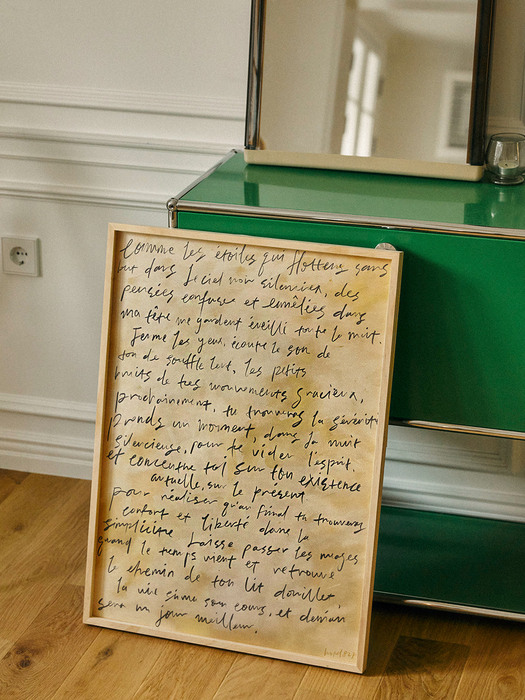 Comme les étoiles qui flottent sans
but dans le ciel noir silencieux, des
pensées confuses et emmêlées dans
ma tête me gardent éveillé toute la nuit.
Ferme les yeux, écoute le son de
ton de souffle lent, les petits
bruits de tes mouvements gracieux,
prochainement, tu trouveras la sérénité
prends un moment, dans la nuit
silencieuse, pour te vider l'esprit.
et concentre toi sur ton existence
actuelle, sur le présent
pour réaliser qu'au final tu trouveras
confort et liberté dans la
simplicité laisse passer les nuages
quand le temps vient et retrouve
le chemin de ton lit douillet,
la vie suit son cours, et demain
sera un jour meilleur.